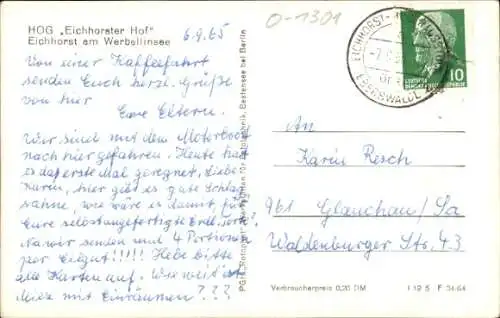 HOG „Eichhorster Hof"
Eichhorst am Werbellinsee
6.9.65
O-1301
Von einer Kaffeefahrt
senden Euch herzl. Grüße
von hier
Eure Eltern.
Wir sind mit dem Motorboot
nach hier gefahren. Heute hat
es das erste Mal geregnet. Liebe
Karin, hier gibt es gute Schlag
sahne, wie wäre es damit, für
Eure selbstangefertigte Erdb. torte?
Na wir senden und 4 Portionen
per Eilgut!!!!! Hebe bitte
alle Karten auf. Wie weit ist
mit Einräumen???
Bestensee bei Berlin
EICHHORST
EBERSWALDE
DEUTSCHE
10
An
Karin Resch
961 Glauchau/Sa
Waldenburger Str. 43
Verbraucherpreis 0,20 DM
I 19 5 · F 34/64